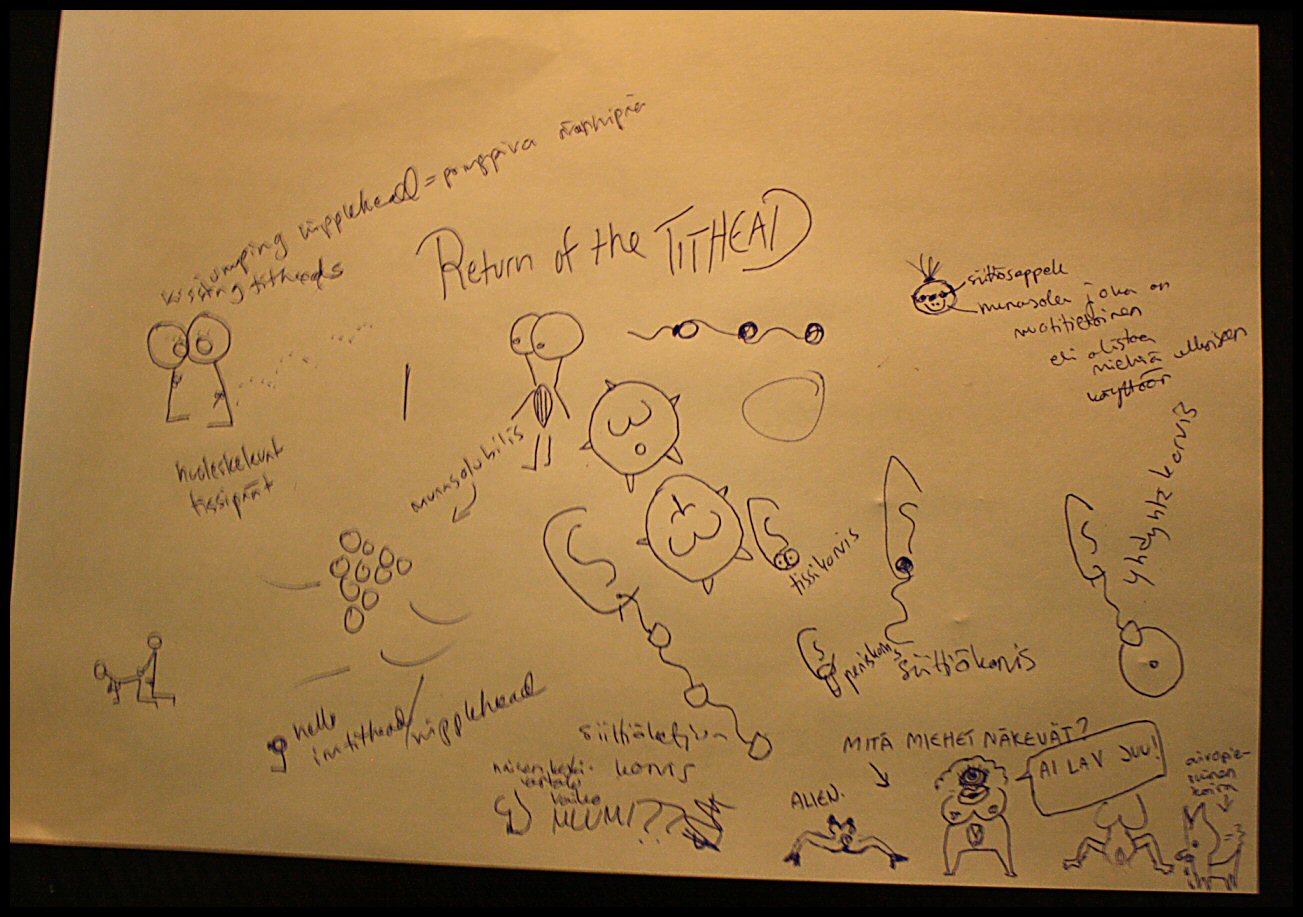 jumping nipplehead = pomppiva nännipää
kissing titheads
Return of the TITHEAD
siittiöseppele
munasolu joka on
muotitietoinen
eli alistaa
miehiä
käyttöön
huoleskelevat
tissipäät
munasolubilis
tissikorvis
yhdyntäkorvis
peniskorvis
siittiökorvis
hello
im tithead/nipplehead
korvis
vartalo
vaiko
MUUMI??
MITÄ MIEHET NÄKEVÄT?
ALIEN.
AI LAV JUU!
koira